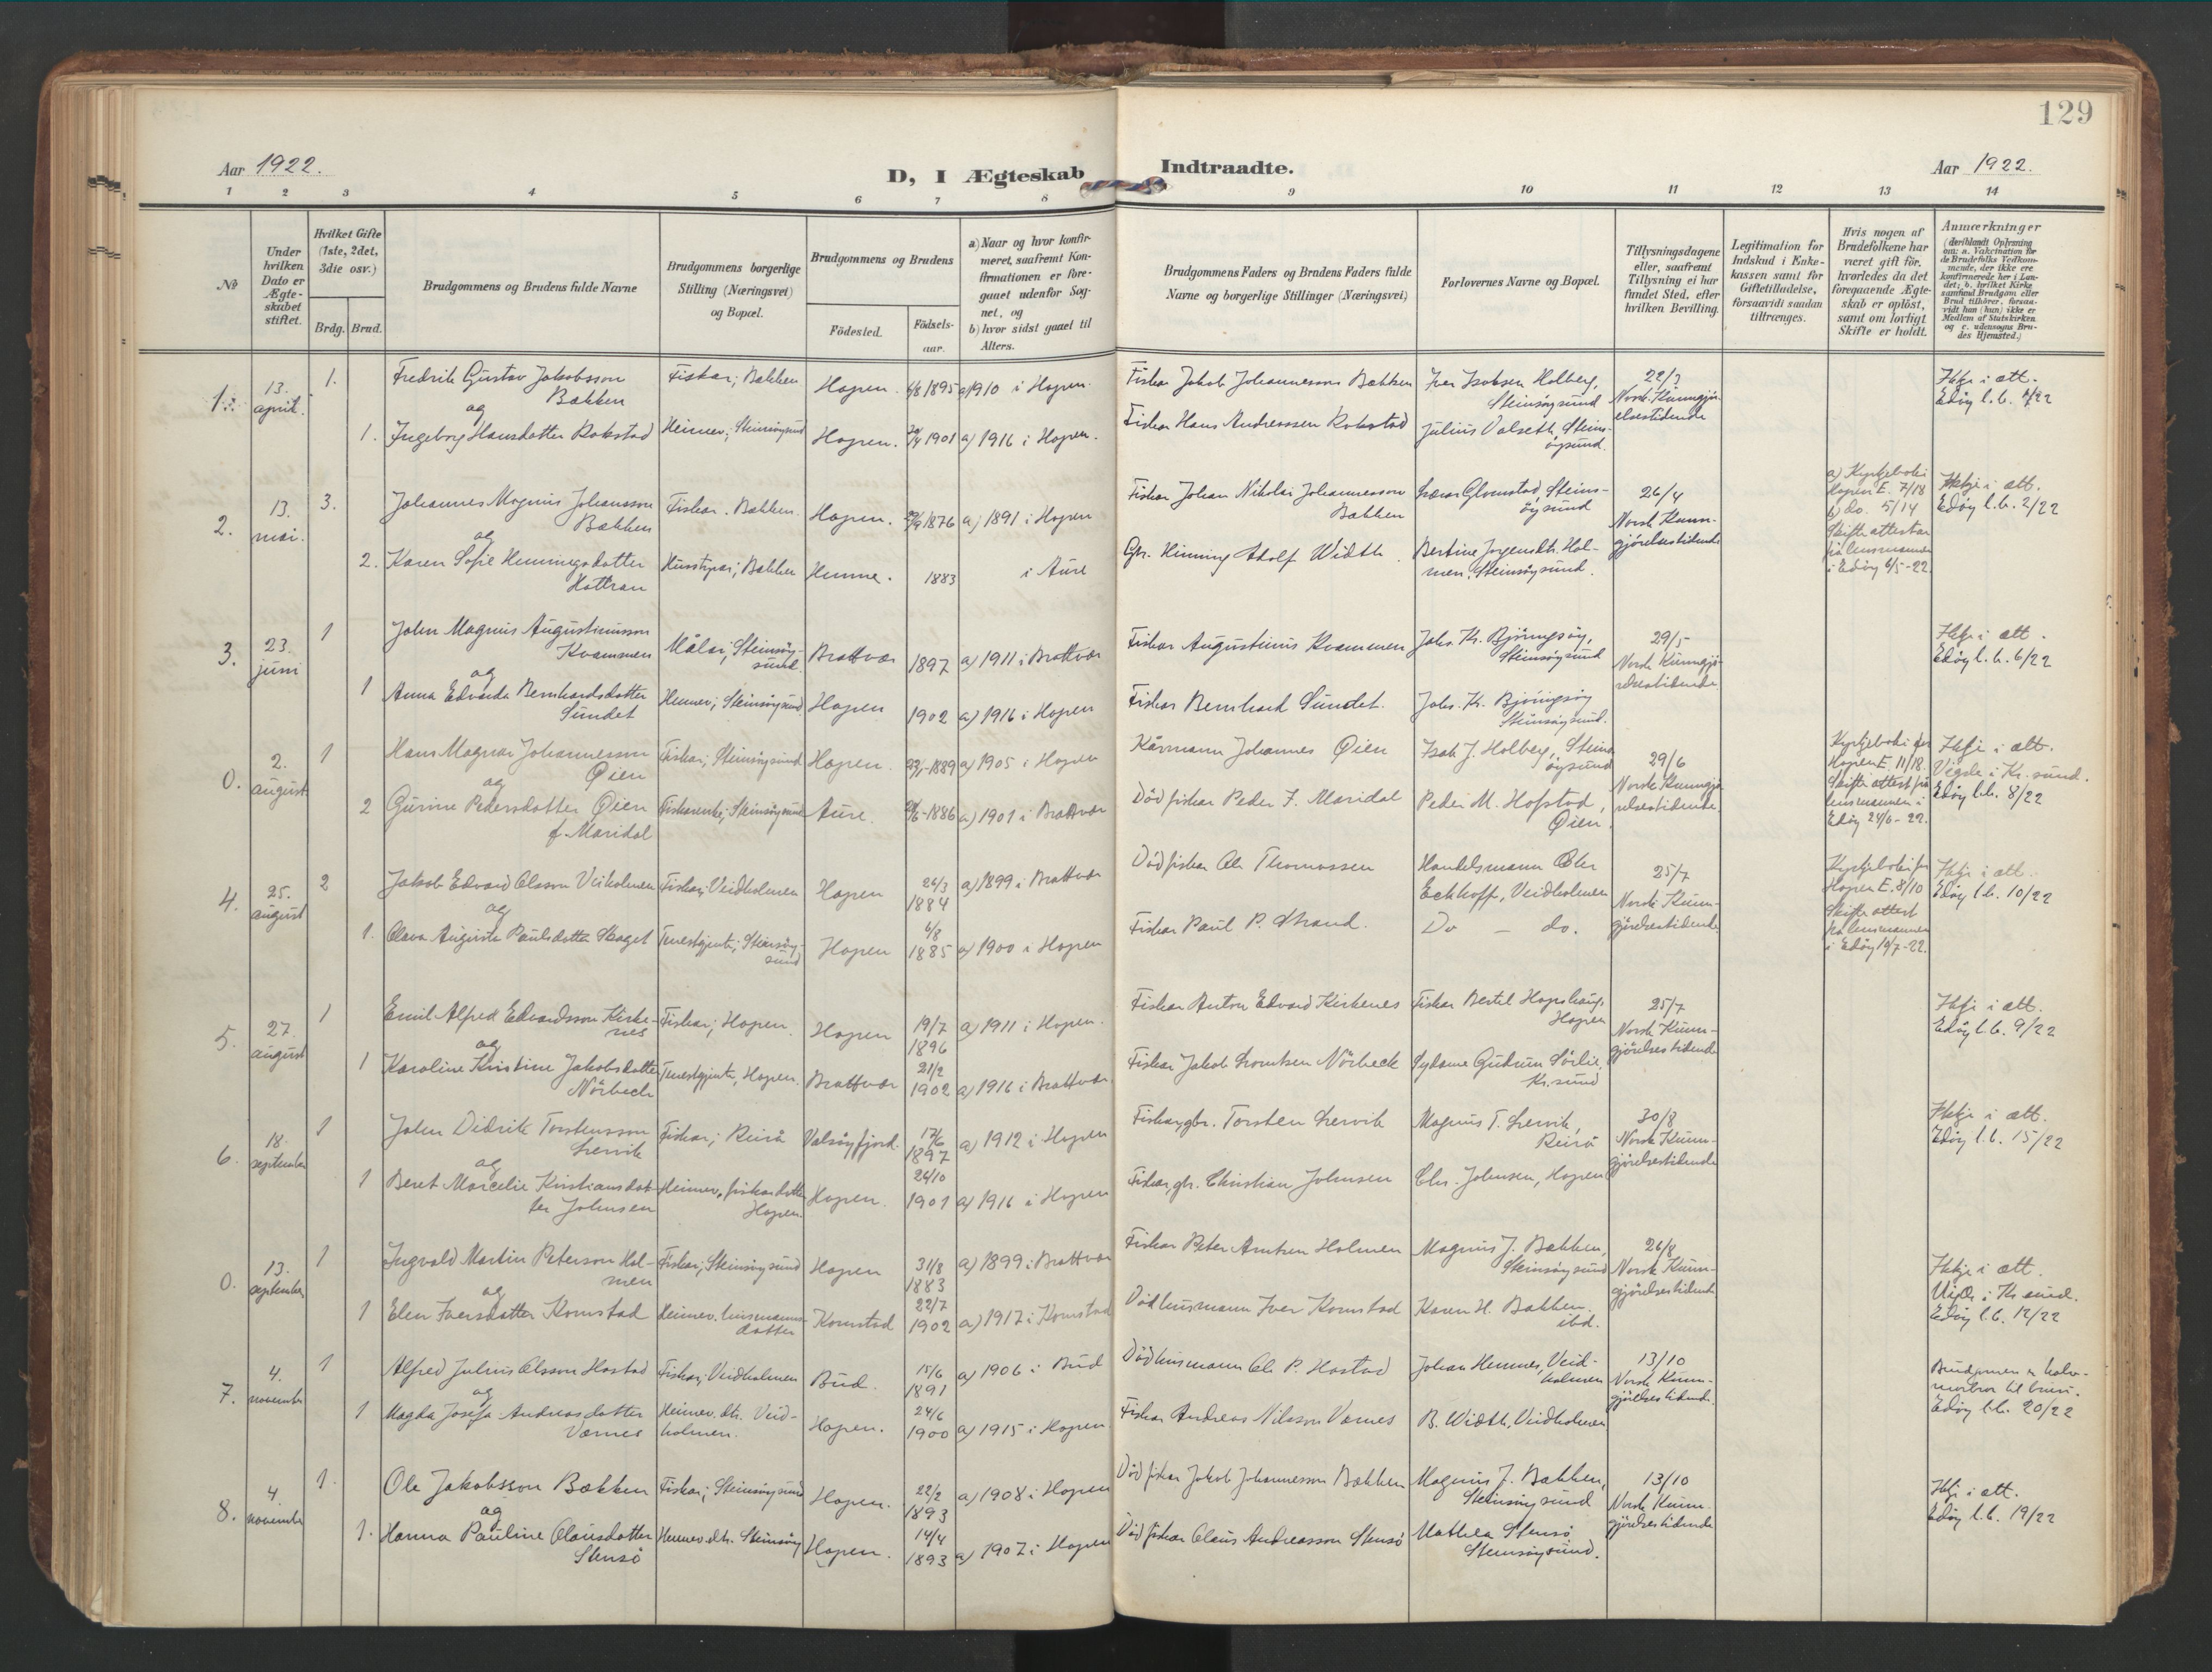 129
Aar 1922.
D, I Ægteskab Indtraadte.
Aar 1922.
1 2 3 4 5 6 7 8 9 10 11 12 13 14
No
Under hvilken Dato er Ægteskabet stiftet.
Hvilket Gifte (1ste, 2det, 3die osv.)
Brdg. Brud.
Brudgommens og Brudens fulde Navne
Brudgommens borgerlige Stilling (Næringsvei) og Bopæl.
Brudgommens og Brudens
Födested.
Födsels-aar.
a) Naar og hvor konfirmeret, saafremt Konfirmationen er foregaaet udenfor Sognet, og
b) hvor sidst gaaet til Alters.
Brudgommens Faders og Brudens Faders fulde Navne og borgerlige Stillinger (Næringsvei)
Forlovernes Navne og Bopæl.
Tillysningsdagene eller, saafremt Tillysning ei har fundet Sted, efter hvilken Bevilling.
Legitimation for Indskud i Enkekassen samt for Giftetilladelse, forsaavidt saadan tiltrænges.
Hvis nogen af Brudefolkene har været gift för, hvorledes da det foregaaende Ægteskab er oplöst, samt om lovligt Skifte er holdt.
Anmærkninger
(deriblandt Oplysning om: a. Vakcination for de Brudefolks Vedkommende, der ikke ere konfirmerede her i Landet; b. hvilket Kirkesamfund Brudgom eller Brud tilhörer, forsaavidt han (hun) ikke er Medlem af Statskirken og c. udensogns Brudes Hjemsted.)
1. 13. april. 1. Fredrik Gustav Jakobsson Bækken Fiskar; Bækken Hopen. 6/8 1895 a) 1910 i Hopen. Fiskar Jakob Johannesson Bækken Iver Isaksen Holberg, Steinsöysund 22/3 Norsk Kunngjörelsestidende Ikkje i ætt. Edöy l.b. 1/22
og
1. Ingeborg Hansdotter Rokstad Heimev; Steinsöysund Hopen. 20/4 1901 a) 1916 i Hopen. Fiskar Hans Andreassen Rokstad Julius Valseth, Steinsöysund.
2. 13. mai. 3. Johannes Magnus Johansson Bækken Fiskar. Bækken. Hopen. 29/9 1876 a) 1891 i Hopen Fiskar Johan Nikolai Johannesson Bækken Glomstad, Steinsöysund 26/4 Norsk Kunngjörelsestidende a) Kyrkjeboki Hopen E. 7/18 b) do. 5/14 Skifteattestar frå lensmannen i Edöy 6/5-22. Ikkje i ætt. Edöy l.b. 2/22
og
2. Karen Sofie Henningsdotter Husstyrar; Bækken Hemne. 1883 i Aure Gbr. Henning Adolf Width. Bertine Jörgensdtr. Holmen, Steinsöysund.
3. 23. juni 1 John Magnus Augustinusson Kvammen Målar; Steinsöysund. Brattvær 1897 a) 1911 i Brattvær Fiskar Augustinus Kvammen Johs. Kr. Björingsöy, Steinsöysund 29/5 Norsk Kunngjörelsestidende Ikkje i ætt. Edöy l.b. 6/22
og
1 Anna Edvarda Bernhardsdotter Sundet Heimev; Steinsöysund Hopen 1902 a) 1916 i Hopen Fiskar Bernhard Sundet. Johs. Kr. Björingsöy Steinsöysund.
0. 2. august 1 Hans Magnar Johannesson Øien Fiskar; Steinsöysund Hopen. 1889 a) 1905 i Hopen Kårmann Johannes Øien Isak J. Holberg, Steinsöysund 29/6 Norsk Kunngjörelsestidende. Kyrkjeboki for Hopen E. 11/18. Skifteattest frå lensmannen i Edöy 24/6-22. Ikkje i ætt. Vigde i Kr.sund. Edöy l.b. 8/22
og
2 Gurine Pedersdotter Øien f. Maridal Fiskarenke; Steinsöysund Aure. 1886 a) 1901 i Brattvær Död fiskar Peder J. Maridal Peder M. Hofstad, Øien.
4. 25. august 2 Jakob Edvard Olsson Veiholmen Fiskar; Veidholmen Hopen 26/3 1884 a) 1899 i Brattvær Död fiskar Ole Thomassen Handelsmann Eckhoff, Veidholmen 25/7 Norsk Kunngjörelsestidende Kyrkjeboki for Hopen E. 8/10 Skifteattest frå lensmannen i Edöy 19/7-22. Ikkje i ætt. Edöy l.b. 10/22
og
1. Olava Augusta Paulsdotter Skaget Tenestgjenta; Steinsöysund Hopen 6/8 1885 a) 1900 i Hopen Fiskar Paul P. Strand. Do — do.
5. 27. august 1 Emil Alfred Edvardsson Kirkenes Fiskar; Hopen. Hopen 19/7 1896 a) 1911 i Hopen. Fiskar Anton Edvard Kirkenes Fiskar Bertel Hopshaug, Hopen 25/7 Norsk Kunngjörelsestidende Ikkje i ætt. Edöy l.b. 9/22
og
1 Karoline Kristine Jakobsdotter Nörbech Tenestgjenta, Hopen. Brattvær 21/2 1902 a) 1916 i Brattvær. Fiskar Jakob Nörbeck Sydame Gudrun Sörlie, Kr.sund
6. 18. september 1 John Didrik Torstensson Lervik Fiskar; Reirå Valsöyfjord. 17/6 1897 a) 1912 i Hopen Fiskar, gbr. Torsten Lervik Magnus T. Lervik, Reirå 30/8 Norsk Kunngjörelsestidende Ikkje i ætt. Edöy l.b. 15/22
og
1 Beret Marcelie Kristiansdotter Johnsen Heimev, fiskardotter Hopen. Hopen. 26/10 1901 a) 1916 i Hopen Fiskar, gbr. Christian Johnsen Chr. Johnsen, Hopen
0. 13. september 1 Ingvald Martin Peterson Holmen Fiskar; Steinsöysund Hopen 31/8 1883 a) 1899 i Brattvær Fiskar Peter Arntsen Holmen Magnus J. Bækken, Steinsöysund 26/8 Norsk Kunngjörelsestidende Ikkje i ætt. Vigde i Kr.sund. Edöy l.b. 12/22
og
1 Elen Iversdotter Kornstad Heimev. husmannsdotter Kornstad 22/7 1902 a) 1917 i Kornstad Död husmann Iver Kornstad Karen H. Bækken. ibd.
7. 4. november 1 Alfred Julius Olsson Hostad Fiskar; Veidholmen Bud. 15/6 1891 a) 1906 i Bud Död husmann Ole P. Hostad Johan Hemnes, Veidholmen 13/10 Norsk Kunngjörelsestidende Brudgomen er halvmorbror til bruri. Edöy l.b. 20/22
og
1 Magda Josefa Andreasdotter Værnes Heimev. dtr. Veidholmen. Hopen. 24/6 1900 a) 1915 i Hopen. Fiskar Andreas Nilsson Værnes B. Width, Veidholmen
8. 4. november 1. Ole Jakobsson Bækken Fiskar; Steinsöysund Hopen. 22/2 1893 a) 1908 i Hopen Död fiskar Jakob Johannesson Bækken Magnus J. Bækken, Steinsöysund 13/10 Norsk Kunngjörelsestidende Ikkje i ætt. Edöy l.b. 19/22
og
1. Hanna Pauline Olausdotter Stensö Heimev. dtr. Steinsöy Hopen. 14/4 1893 a) 1907 i Hopen Död fiskar Olaus Andreasson Stensö Mathea Stensö Steinsöysund.